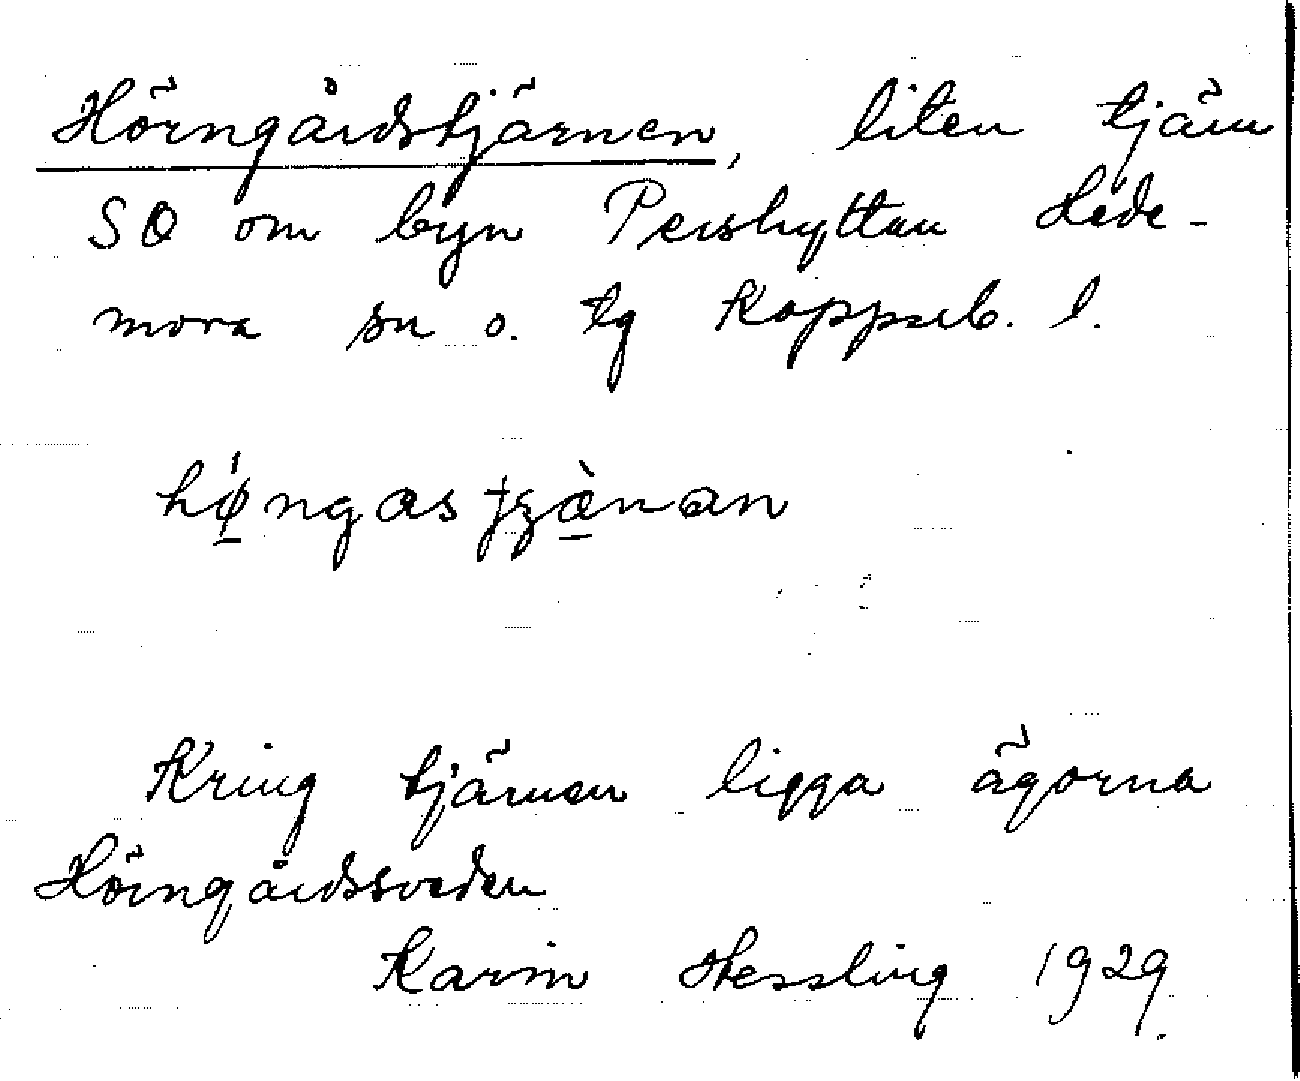 Hörngårdstjärnen, liten tjärn
SO om byn Pershyttan Hede-
mora sn o. tg Kopparb. l.
hǿngas tʒæ̀nan
Kring tjärnen ligga ägorna
Hörngårdssveden
Karin Hessling 1929.